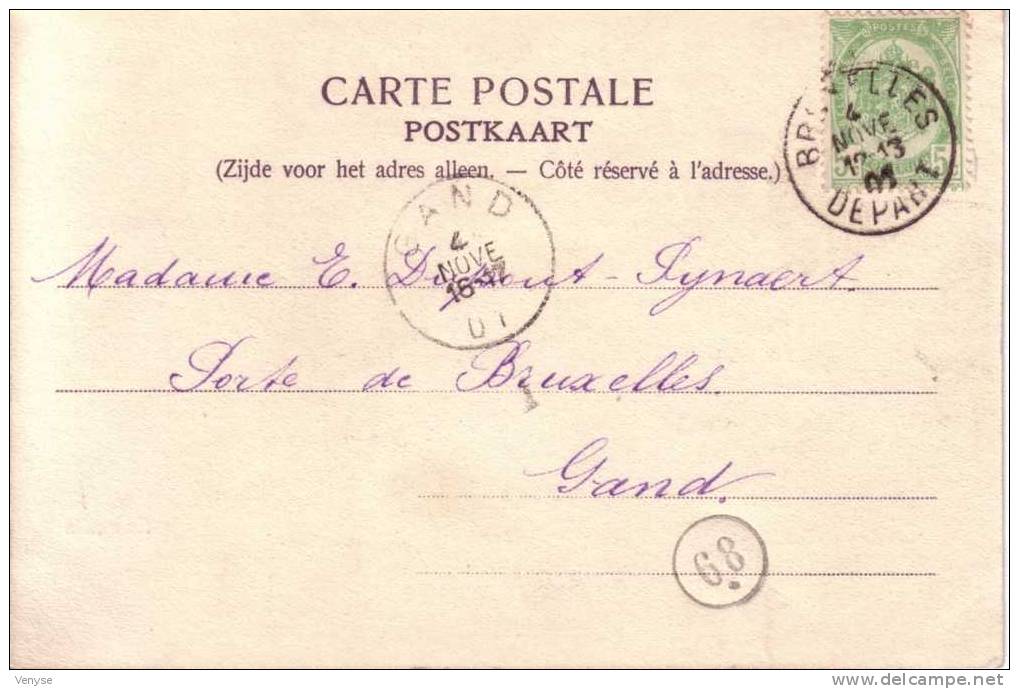 POSTES
CARTE POSTALE
POSTKAART
(Zijde voor het adres alleen. — Côté réservé à l'adresse.)
BRUXELLES
4
NOVE
12-13
01
DEPART
5 5
GAND
4
NOVE
16-17
01
Madame E. Dumont-Fynaert
Porte de Bruxelles.
1
Gand.
68
Venyse
www.delcampe.net